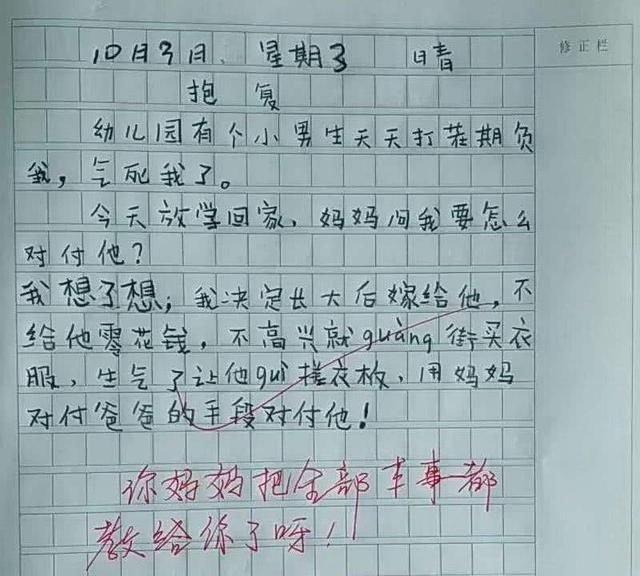 10月3日、星期3 晴
修正栏
抱复
幼儿园有个小男生天天打茬期负
我，气死我了。
今天放学回家、妈妈问我要怎么
对付他？
我想了想；我决定长大后嫁给他，不
给他零花钱，不高兴就guàng街买衣
服、生气了让他guì搓衣板、用妈妈
对付爸爸的手段对付他！
你妈妈把全部本事都
教给你了呀！